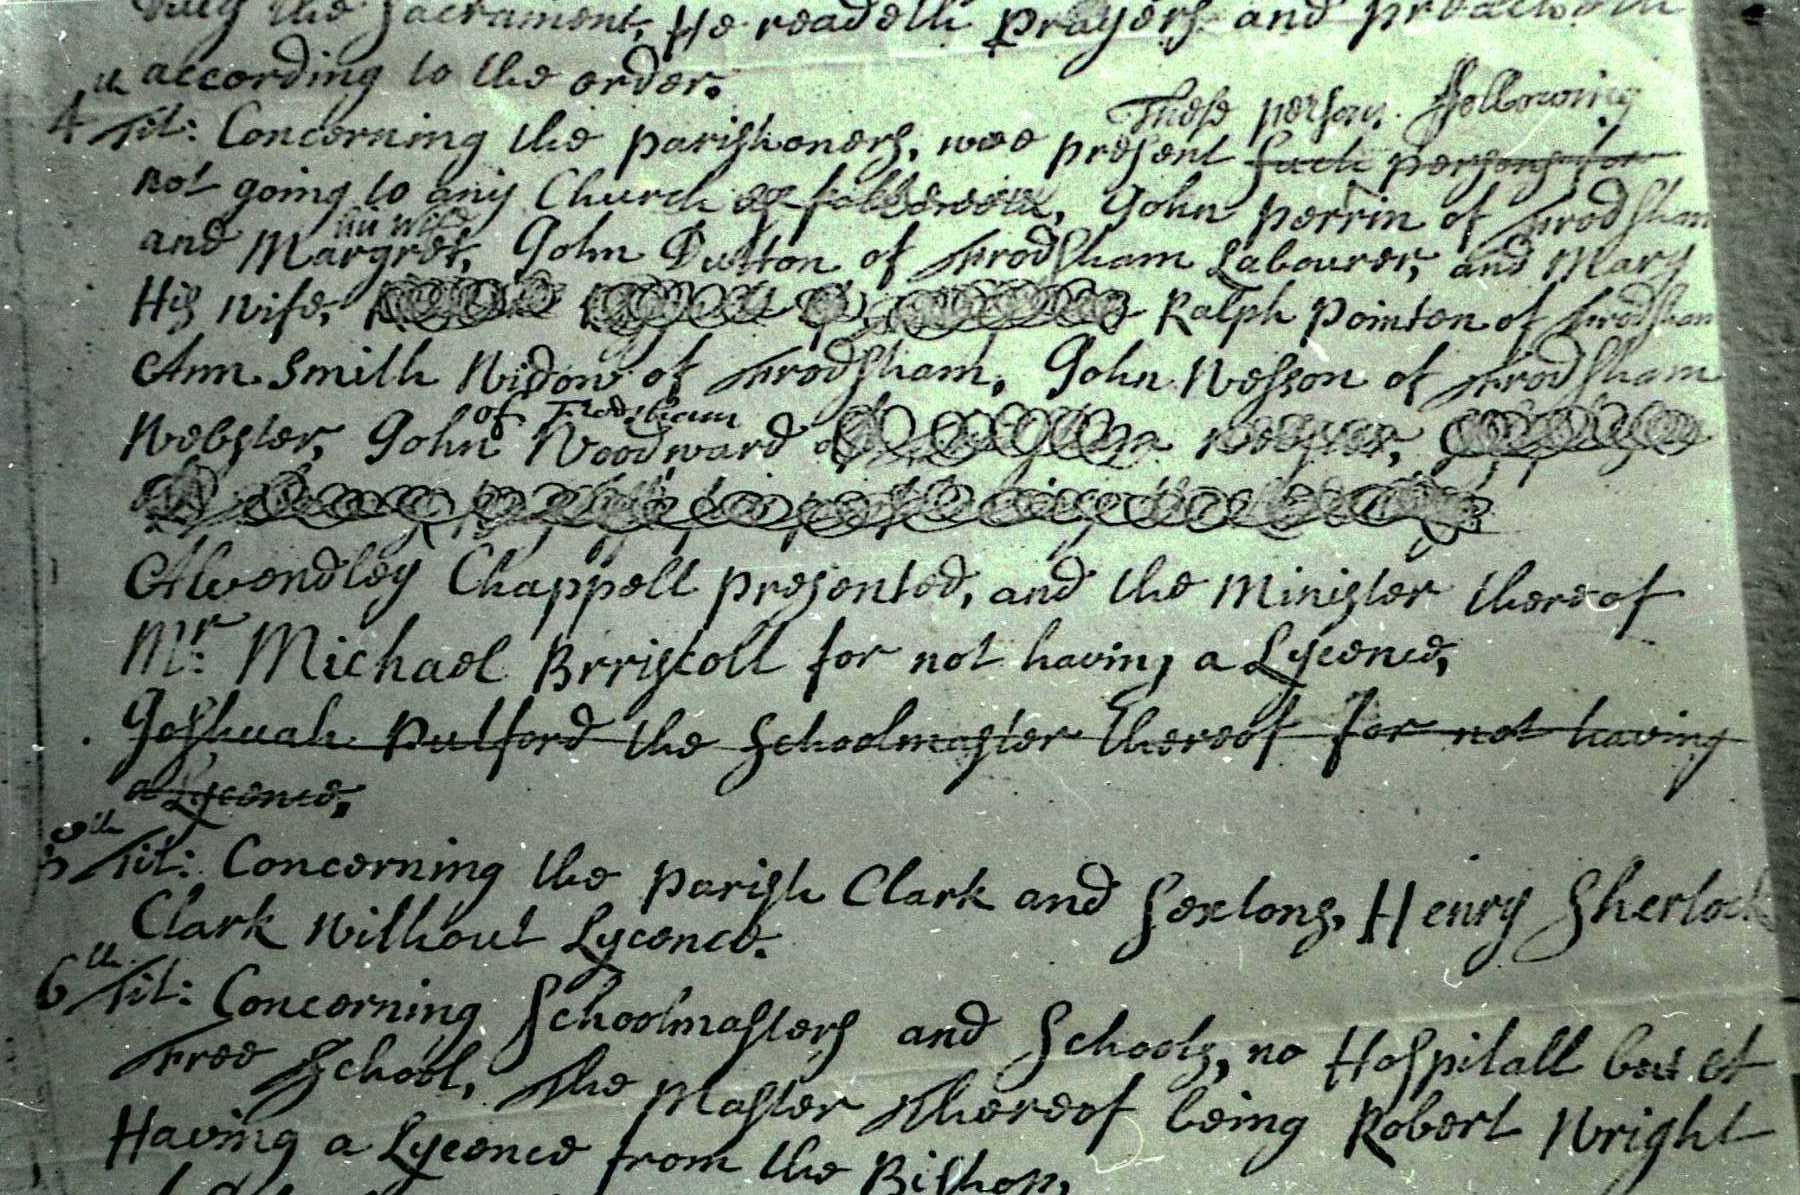 the Sacrament, He readeth prayers and preacheth
according to the order.
These persons following
4th Tit: Concerning the parishoners, wee present such persons for
not going to any Church, John Perrin of Frodsham
his wife
and Margret, John Dutton of Frodsham Labourer, and Mary
His wife, Ralph Pointon of Frodsham
Ann Smith Widow of Frodsham, John Wesson of Frodsham
of Frodsham
Webster, John Woodward of Webster,
Alvendley Chappell presented, and the Minister thereof
Mr: Michael Brriscoll for not having a Lycence,
Joshuah Pulford the Schoolmaster thereof for not having
a Lycence,
5th Tit: Concerning the parish Clark and Sextons, Henry Sherlock
Clark without Lycence.
6th Tit: Concerning Schoolmasters and Schools, no Hospitall but
Free School, The Master Thereof being Robert Wright
Having a Lycence from the Bishop,